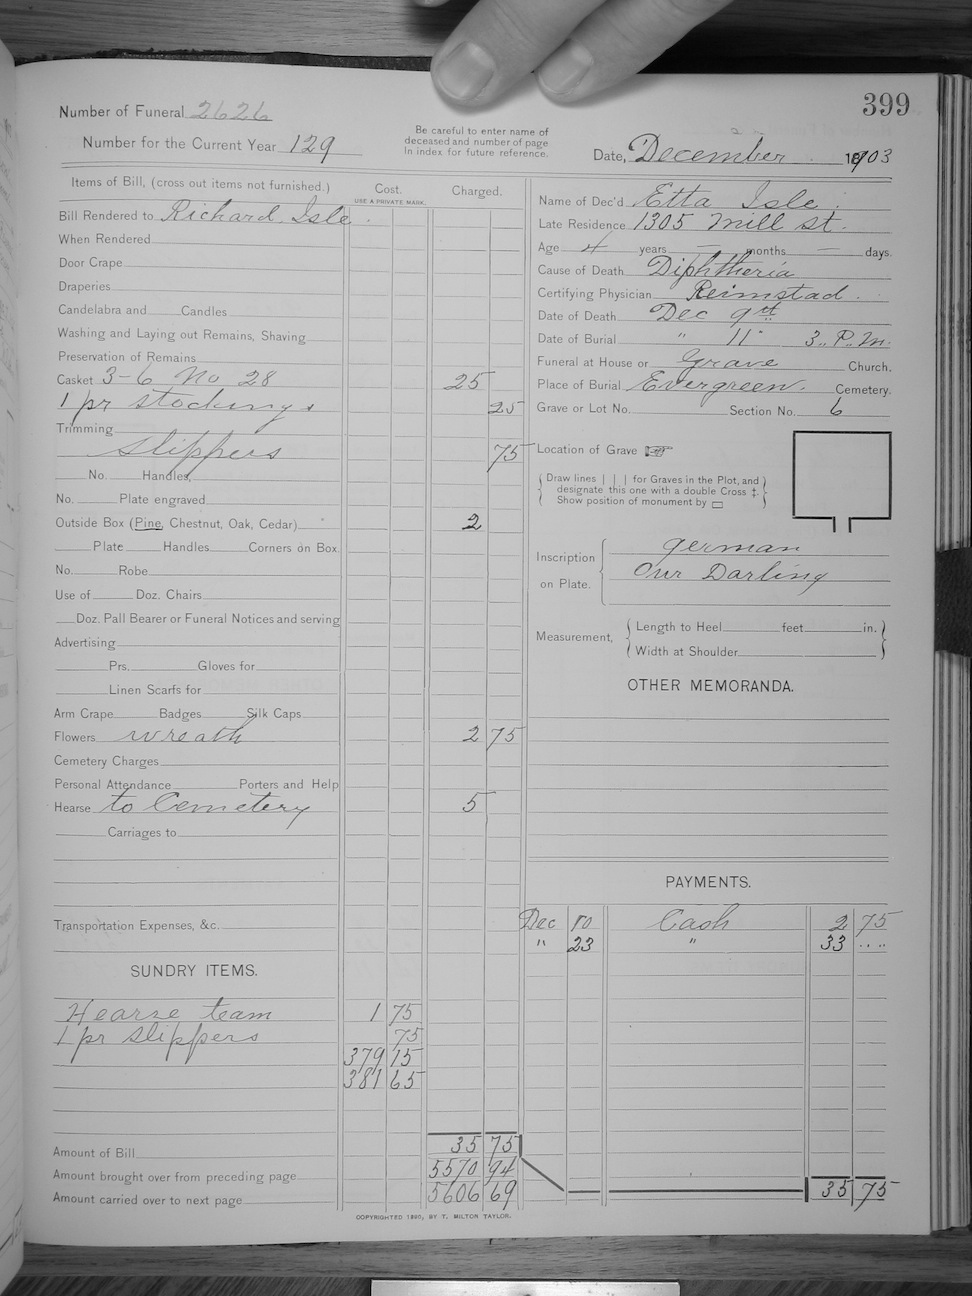 399
Number of Funeral 2626
Number for the Current Year 129
Be careful to enter name of
deceased and number of page
In index for future reference.
Date, December 1903
Items of Bill, (cross out items not furnished.) Cost. Charged.
USE A PRIVATE MARK.
Bill Rendered to Richard Isle
When Rendered
Door Crape
Draperies
Candelabra and Candles
Washing and Laying out Remains, Shaving
Preservation of Remains
Casket 3-6 No 28 25
1 pr stockings 25
Trimming
slippers 75
No. Handles,
No. Plate engraved
Outside Box (Pine, Chestnut, Oak, Cedar) 2
Plate Handles Corners on Box
No. Robe
Use of Doz. Chairs
Doz. Pall Bearer or Funeral Notices and serving
Advertising
Prs. Gloves for
Linen Scarfs for
Arm Crape Badges Silk Caps
Flowers wreath 2 75
Cemetery Charges
Personal Attendance Porters and Help
Hearse to Cemetery 5
Carriages to
Transportation Expenses, &c.
SUNDRY ITEMS.
Hearse team 1 75
1 pr slippers 75
379 15
381 65
Amount of Bill 35 75
Amount brought over from preceding page 5570 94
Amount carried over to next page 5606 69
COPYRIGHTED 1890, BY T. MILTON TAYLOR.
Name of Dec'd Etta Isle
Late Residence 1305 Mill st.
Age 4 years — months — days.
Cause of Death Diphtheria
Certifying Physician Reimstad
Date of Death Dec 9
Date of Burial " 11 3.. P.M.
Funeral at House or Grave Church.
Place of Burial Evergreen. Cemetery.
Grave or Lot No. Section No. 6
Location of Grave ☞
Draw lines | | | for Graves in the Plot, and
designate this one with a double Cross ‡.
Show position of monument by ▭
Inscription
on Plate.
german
Our Darling
Measurement,
Length to Heel feet in.
Width at Shoulder
OTHER MEMORANDA.
PAYMENTS.
Dec 10 Cash 2 75
" 23 " 33 ....
35 75